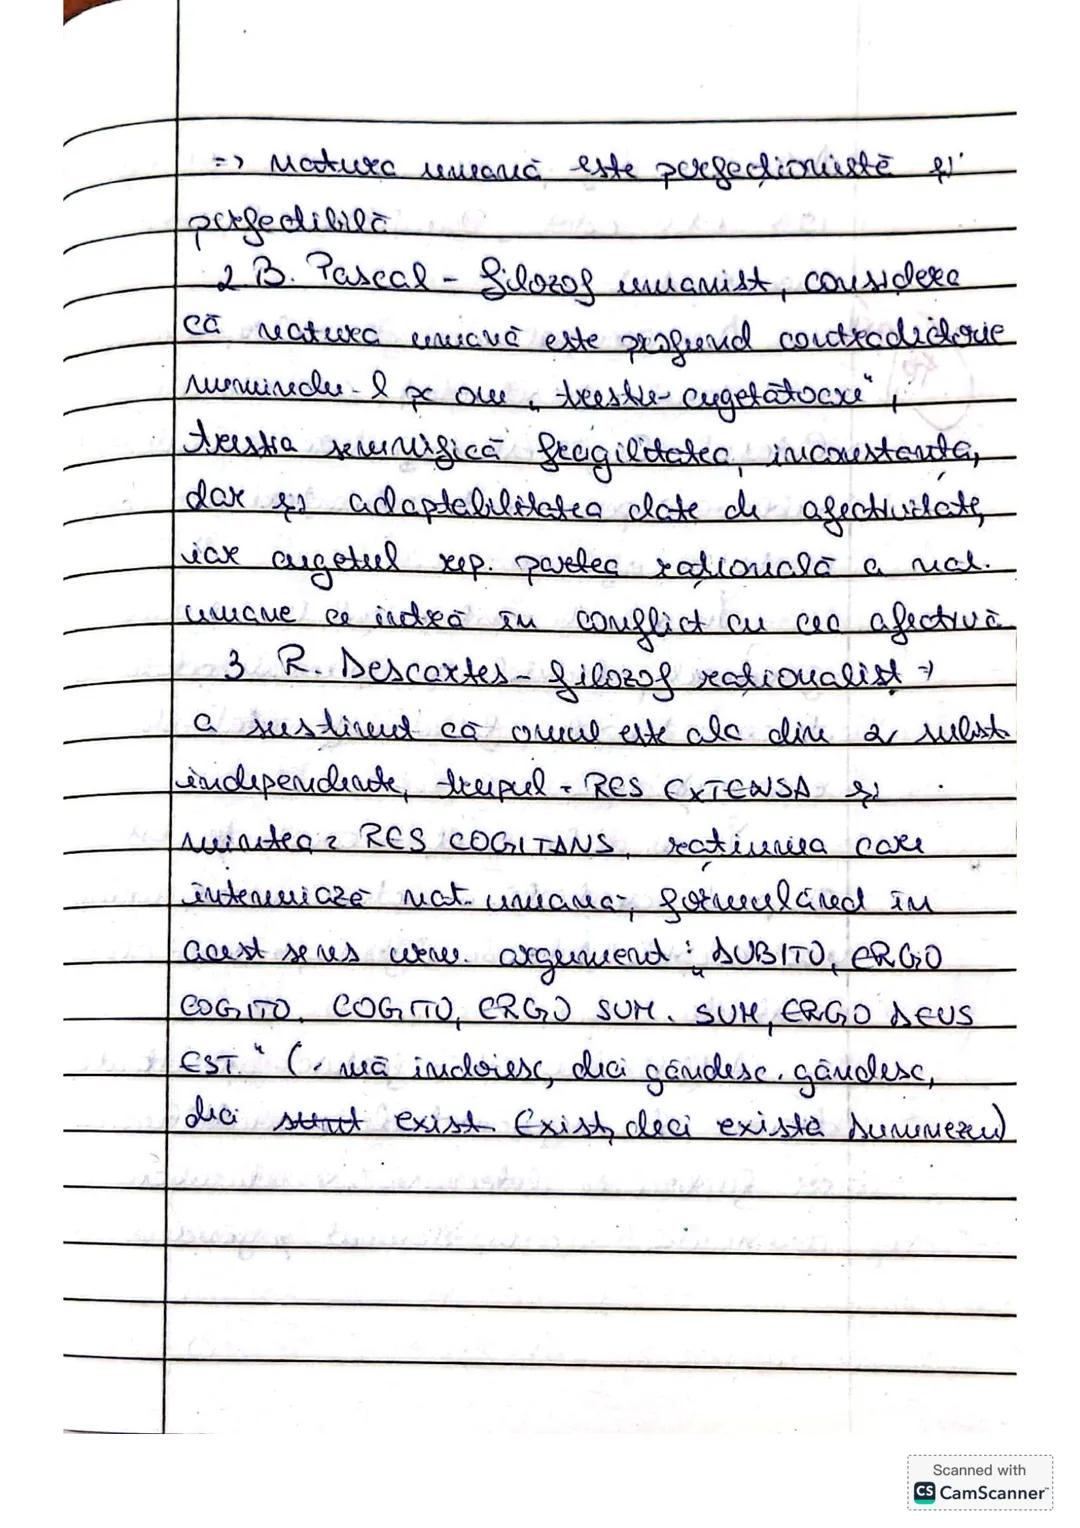 => natura umană este perfecționistă și
perfectibilă
2 B. Pascal - filozof umanist, considera
că natura umană este profund contradictorie
numindu-l pe om „trestie cugetătoare",
trestia semnifică fragilitatea, inconstanța,
dar și adaptabilitatea date de afectivitate,
iar cugetul rep. partea rațională a nat.
umane ce intră în conflict cu cea afectivă
3 R. Descartes - filozof raționalist →
a susținut că omul este alc din 2 subst
independente, trupul = RES EXTENSA și
mintea = RES COGITANS, rațiunea care
întemeiază nat. umană, formulând în
acest sens urm. argument: „DUBITO, ERGO
COGITO. COGITO, ERGO SUM. SUM, ERGO DEUS
EST." (. mă îndoiesc, deci gândesc. gândesc,
deci sunt exist. Exist, deci există Dumnezeu)
Scanned with
CS CamScanner